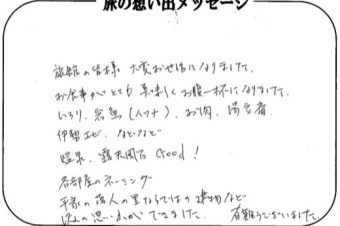 旅の想い出メッセージ
旅館の皆様 大変お世話になりまして、
お食事がとても美味しくお腹一杯になりまして、
いろり、岩魚(イワナ)、お肉、
伊勢エビ、などなど
温泉、露天風呂 Good!
各部屋のネーミング
平家の落人の里ならではの建物など
沢山の思い出ができました。 有難うございました。